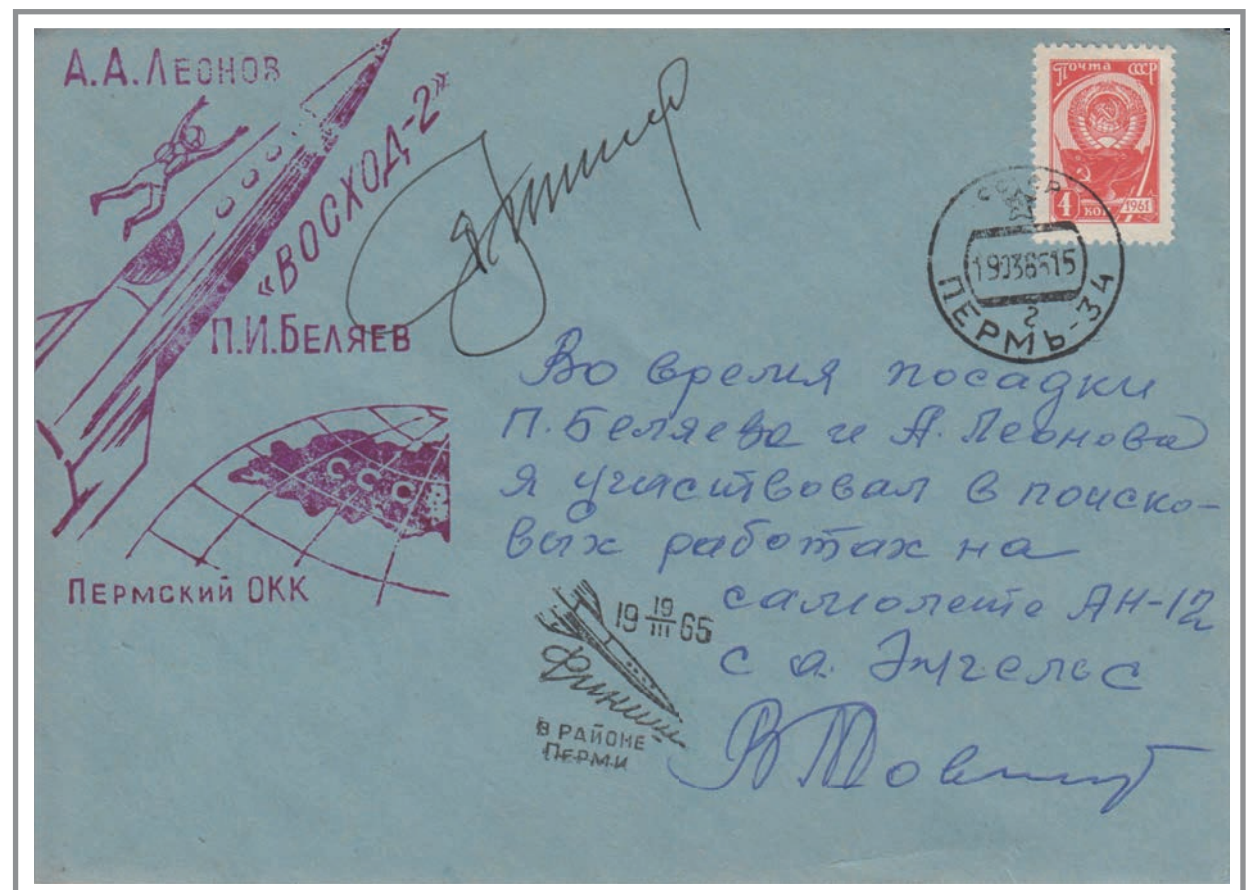 А.А.ЛЕОНОВ
«ВОСХОД-2»
П.И.БЕЛЯЕВ
СССР
ПЕРМСКИЙ ОКК
Почта СССР
4 КОП
1961
СССР
19036515
2
ПЕРМЬ-34
Во время посадки
П. Беляева и А. Леонова
я участвовал в поиско-
вых работах на
самолете АН-12
с а. Энгельс
19 19/III 65
Финиш
В РАЙОНЕ
ПЕРМИ